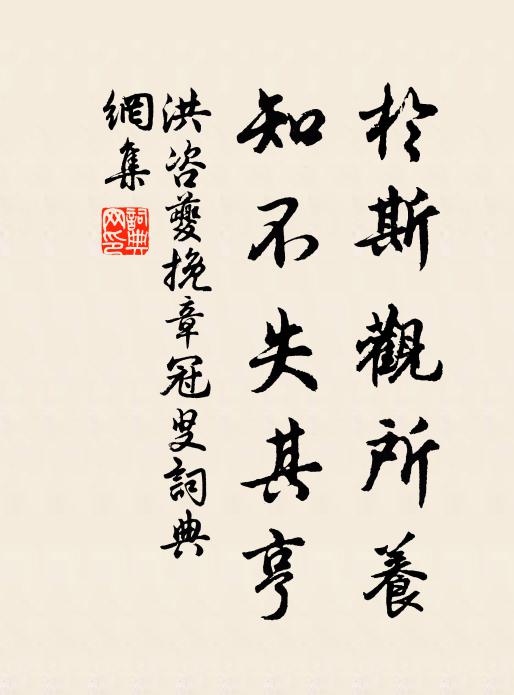 於斯觀所養
知不失其亨
洪咨夔挽章冠叟詞典
網集
詞典網印